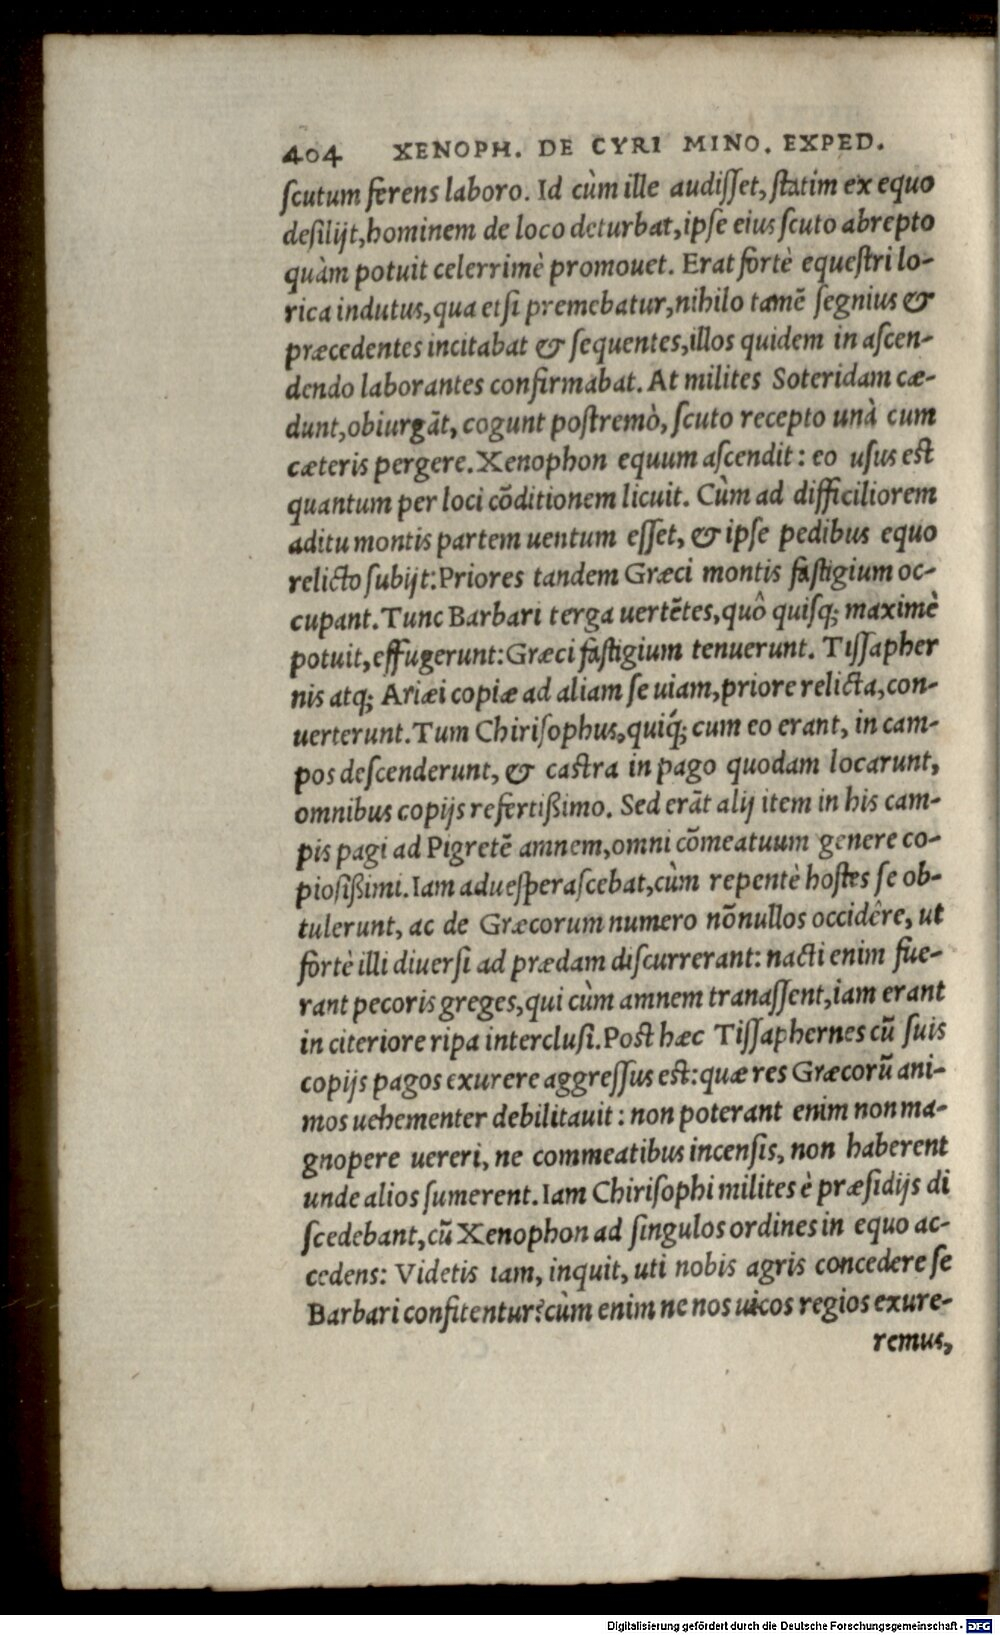 404 XENOPH. DE CYRI MINO. EXPED.
scutum ferens laboro. Id cùm ille audisset, statim ex equo
desilijt, hominem de loco deturbat, ipse eius scuto abrepto
quàm potuit celerrimè promouet. Erat fortè equestri lo-
rica indutus, qua etsi premebatur, nihilo tamē segnius &
præcedentes incitabat & sequentes, illos quidem in ascen-
dendo laborantes confirmabat. At milites Soteridam cæ-
dunt, obiurgāt, cogunt postremò, scuto recepto unà cum
cæteris pergere. Xenophon equum ascendit: eo usus est
quantum per loci cōditionem licuit. Cùm ad difficiliorem
aditu montis partem uentum esset, & ipse pedibus equo
relicto subijt: Priores tandem Græci montis fastigium oc-
cupant. Tunc Barbari terga uertētes, quô quisq; maximè
potuit, effugerunt: Græci fastigium tenuerunt. Tissapher
nis atq; Ariæi copiæ ad aliam se uiam, priore relicta, con-
uerterunt. Tum Chirisophus, quiq́; cum eo erant, in cam-
pos descenderunt, & castra in pago quodam locarunt,
omnibus copijs refertißimo. Sed erāt alij item in his cam-
pis pagi ad Pigretē amnem, omni cōmeatuum genere co-
piosißimi. Iam aduesperascebat, cùm repentè hostes se ob-
tulerunt, ac de Græcorum numero nōnullos occidêre, ut
fortè illi diuersi ad prædam discurrerant: nacti enim fue-
rant pecoris greges, qui cùm amnem tranassent, iam erant
in citeriore ripa interclusi. Post hæc Tissaphernes cū suis
copijs pagos exurere aggressus est: quæ res Græcorū ani-
mos uehementer debilitauit: non poterant enim non ma-
gnopere uereri, ne commeatibus incensis, non haberent
unde alios sumerent. Iam Chirisophi milites è præsidijs di
scedebant, cū Xenophon ad singulos ordines in equo ac-
cedens: Videtis iam, inquit, uti nobis agris concedere se
Barbari confitentur? cùm enim ne nos uicos regios exure-
remus,
Digitalisierung gefördert durch die Deutsche Forschungsgemeinschaft - DFG